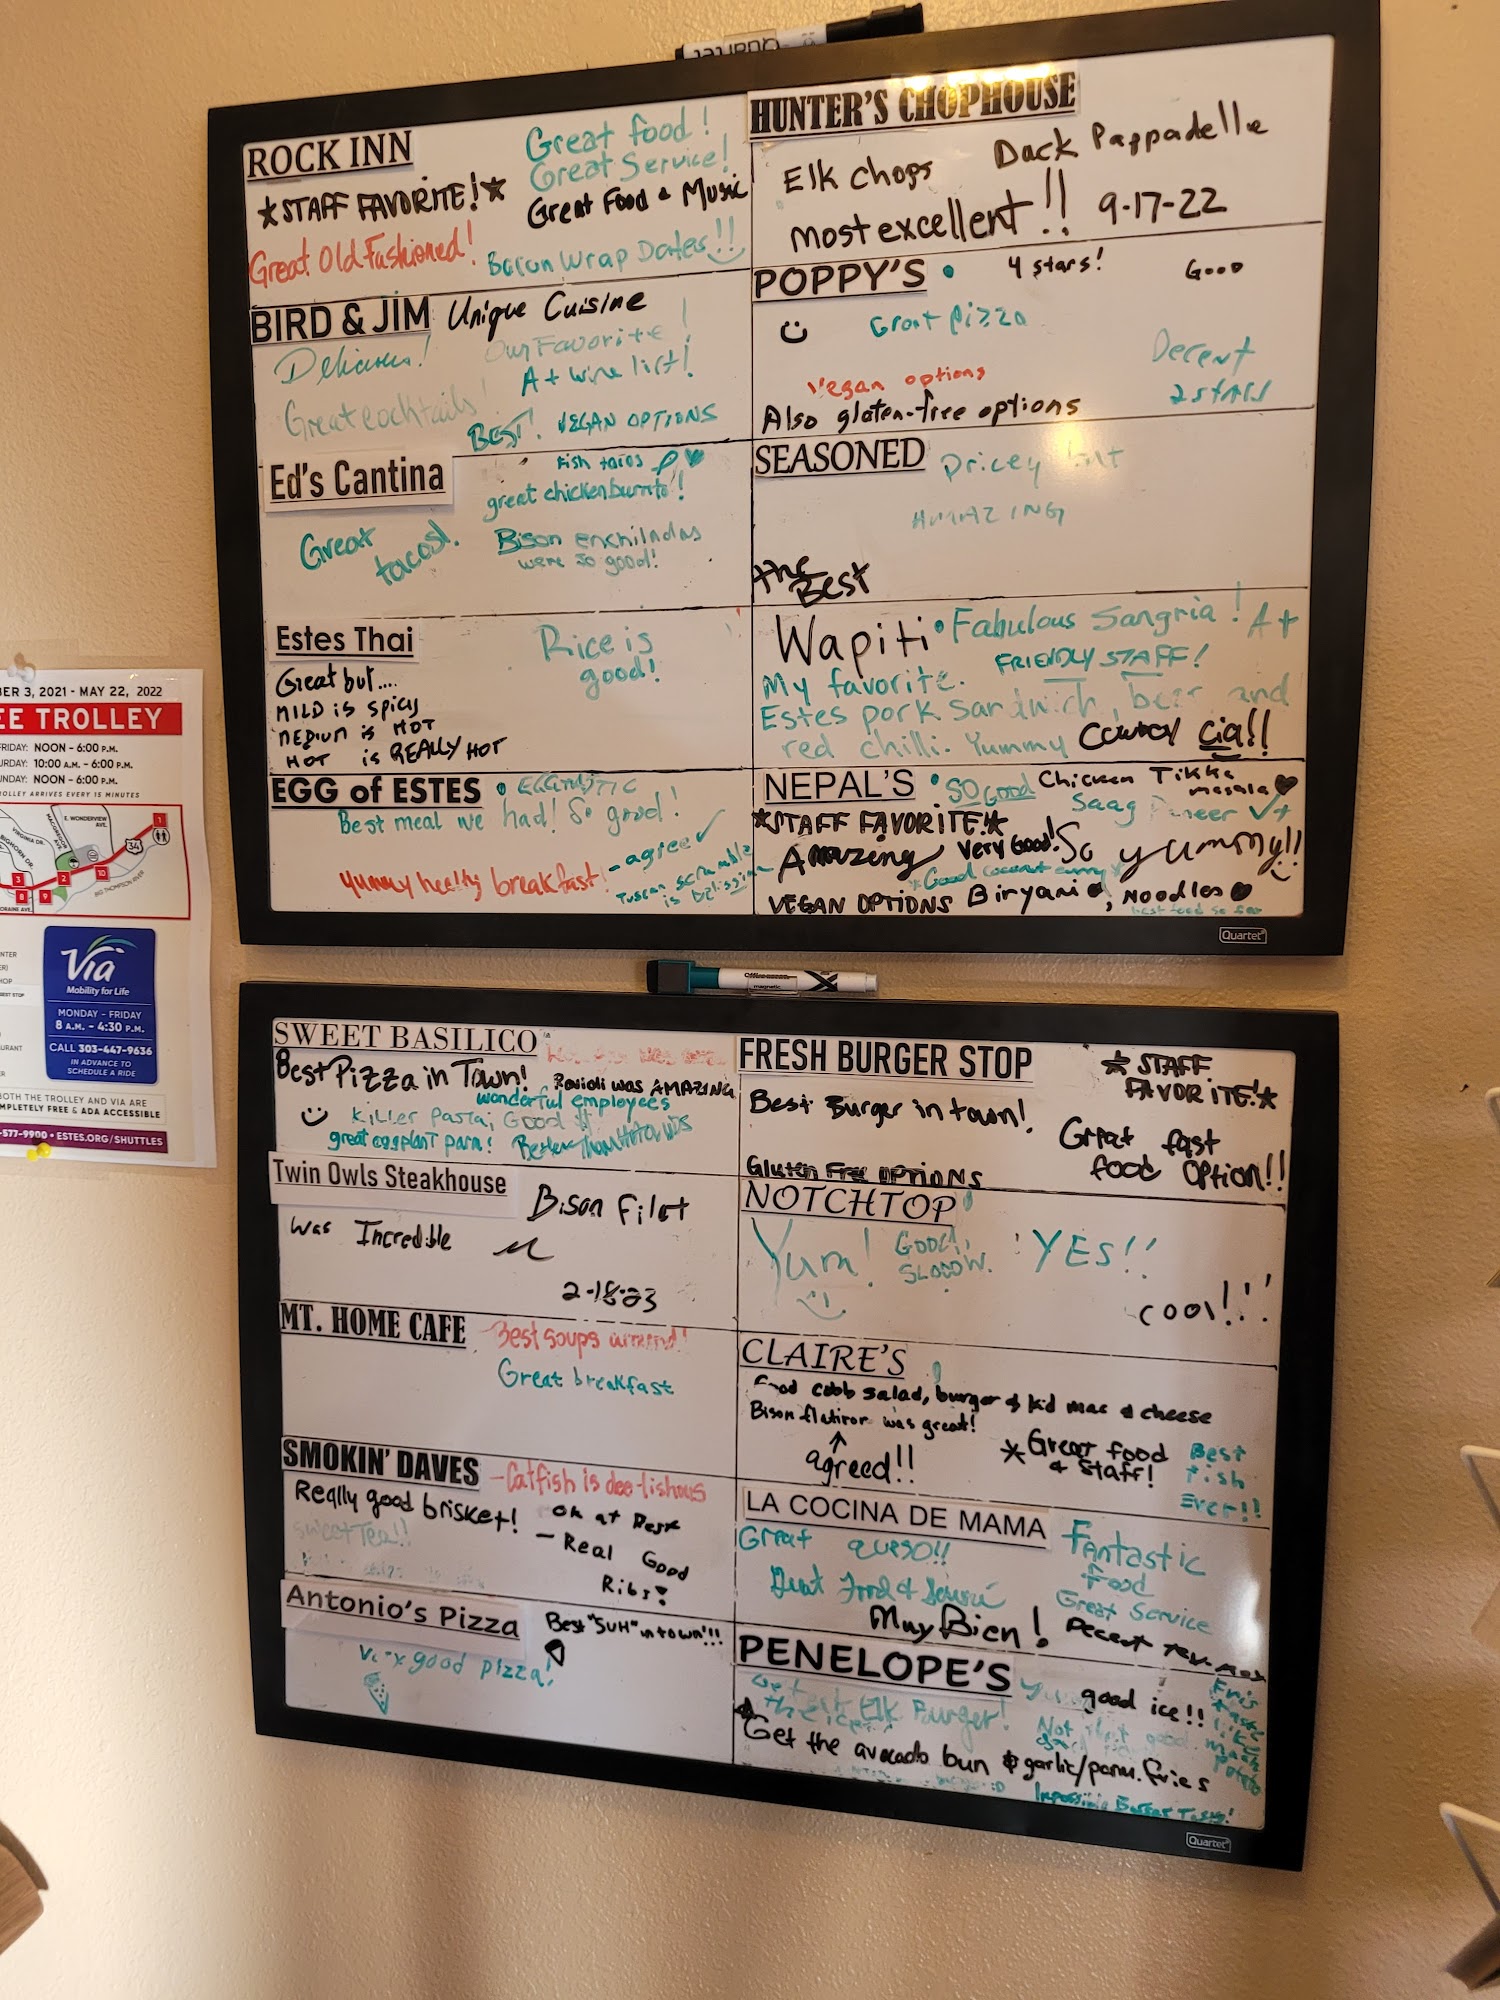 ROCK INN
★STAFF FAVORITE!★
Great food!
Great Service!
Great Food & Music
Great Old Fashioned!
Bacon Wrap Dates!!
BIRD & JIM
Unique Cuisine
Delicious!
Our Favorite!
A+ wine list!
Great cocktails!
BEST!
VEGAN OPTIONS
Ed's Cantina
Fish tacos
great chicken burrito!
Great tacos!
Bison enchiladas
were so good!
Estes Thai
Great but....
MILD is spicy
MEDIUM is HOT
HOT is REALLY HOT
Rice is
good!
EGG of ESTES
• EGGTASTIC
Best meal we had! So good!
- agree ✓
Yummy healthy breakfast!
Tuscan scramble
is
HUNTER'S CHOPHOUSE
Elk chops
Duck Pappadelle
most excellent!! 9-17-22
POPPY'S
4 stars!
Good
Great pizza
Vegan options
Decent
2 stars
Also gluten-free options
SEASONED
Pricey but
AMAZING
the Best
Wapiti
• Fabulous Sangria! A+
FRIENDLY STAFF!
My favorite.
Estes pork sandwich, beer and
red chilli. Yummy
Cowboy
NEPAL'S
• SO GOOD
Chicken Tikka
masala
Saag Paneer
★STAFF FAVORITE!★
Amazing
Very Good!
So yummy!!
Good coconut curry
VEGAN OPTIONS
Biryani, Noodles
best food so far
Quartet
Office
magnetic
SWEET BASILICO
Best Pizza in Town!
Ravioli was AMAZING
wonderful employees
Killer pasta, Good
great eggplant parm!
Better than
Twin Owls Steakhouse
Bison Filet
was Incredible
2-18-23
MT. HOME CAFE
Best soups around!
Great breakfast
SMOKIN' DAVES
-Catfish is dee-lishous
Really good brisket!
OK at Best
sweet Tea!!
- Real Good
Ribs!
Antonio's Pizza
Best "SUH" in town!!!
Very good pizza!
FRESH BURGER STOP
★STAFF
FAVORITE!★
Best Burger in town!
Great fast
food option!!
Gluten Free OPTIONS
NOTCHTOP
Yum!
GOOD!,
SLOOOW.
YES!!
COOL!!!
CLAIRE'S
Good cobb salad, burger & kid mac & cheese
Bison flatiron was great!
agreed!!
*Great food
& Staff!
Best
Fish
Ever!!
LA COCINA DE MAMA
Great queso!!
Fantastic
Food
Great Service
Great Food & Service
Muy Bien!
Decent
PENELOPE'S
good ice!!
Elk Burger!
Get the avocado bun & garlic/parm. fries
Quartet
BER 3, 2021 - MAY 22, 2022
EE TROLLEY
FRIDAY: NOON - 6:00 P.M.
URDAY: 10:00 A.M. - 6:00 P.M.
UNDAY: NOON - 6:00 P.M.
ROLLEY ARRIVES EVERY 15 MINUTES
E. WONDERVIEW
AVE.
34
1
3
2
10
8
9
BIG THOMPSON RIVER
Via
Mobility for Life
MONDAY - FRIDAY
8 A.M. - 4:30 P.M.
CALL 303-447-9636
IN ADVANCE TO
SCHEDULE A RIDE
BOTH THE TROLLEY AND VIA ARE
MPLETELY FREE & ADA ACCESSIBLE
-577-9900 • ESTES.ORG/SHUTTLES